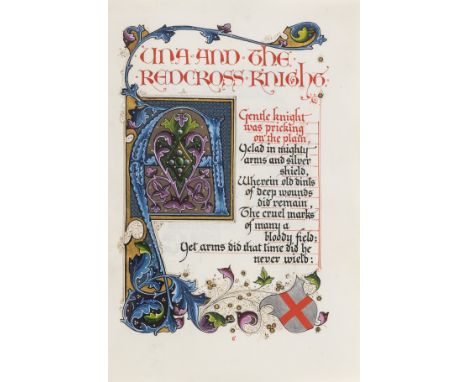 UNA·AND·THE·
·REDCROSS·KNIGHT·
A
Gentle knight
was pricking
on the plain,
Yclad in mighty
arms and silver
shield,
Wherein old dints
of deep wounds
did remain,
The cruel marks
of many a
bloody field;
Yet arms till that time did he
never wield: